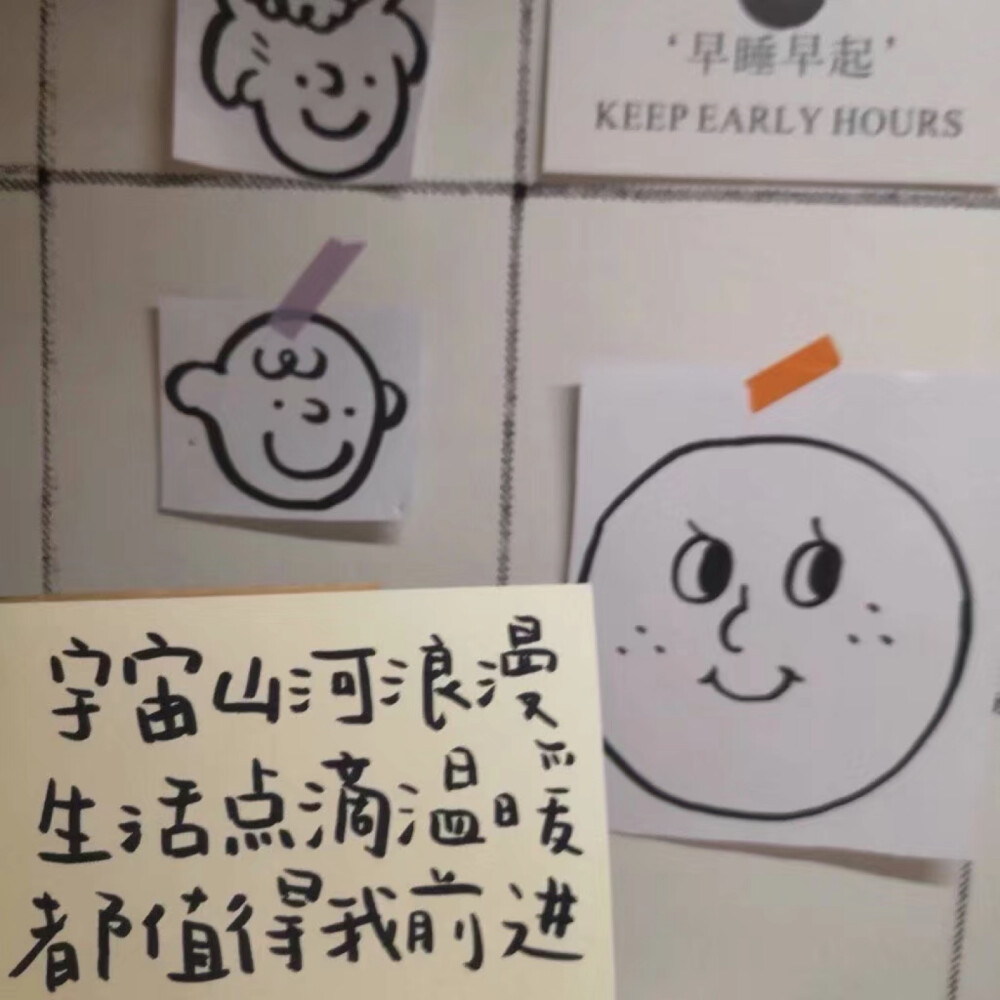 ‘早睡早起’
KEEP EARLY HOURS
宇宙山河浪漫
生活点滴温暖
都值得我前进